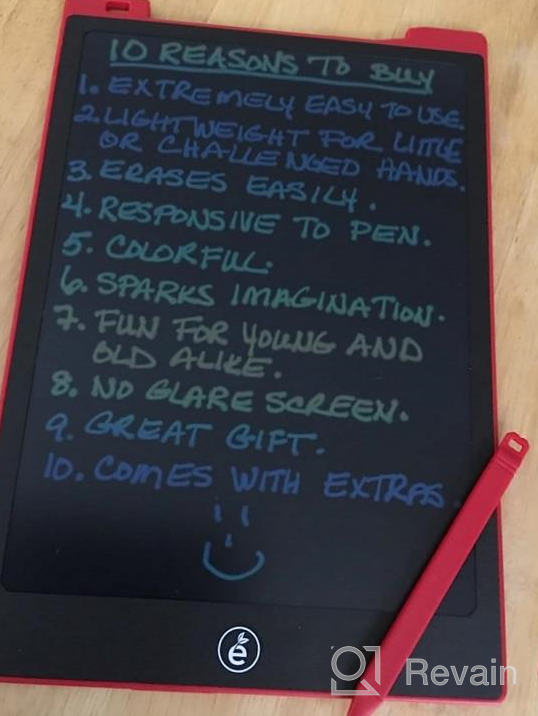 10 REASONS TO BUY
1. EXTREMELY EASY TO USE.
2. LIGHTWEIGHT FOR LITTLE
OR CHALLENGED HANDS.
3. ERASES EASILY.
4. RESPONSIVE TO PEN.
5. COLORFUL.
6. SPARKS IMAGINATION.
7. FUN FOR YOUNG AND
OLD ALIKE.
8. NO GLARE SCREEN.
9. GREAT GIFT.
10. COMES WITH EXTRAS.
é
Revain